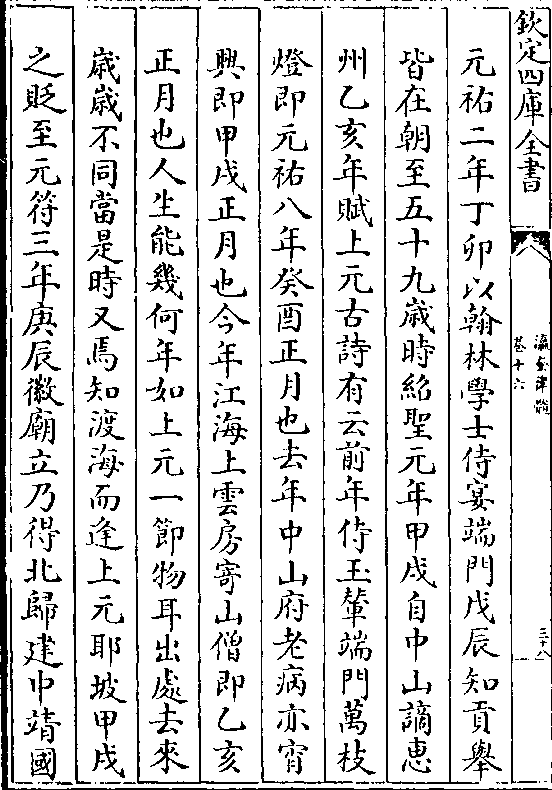 欽定四庫全書
瀛奎律髓
卷十六
三十八
元祐二年丁卯以翰林學士侍宴端門戊辰知貢舉
皆在朝至五十九歳時紹聖元年甲戌自中山謫惠
州乙亥年賦上元古詩有云前年侍玉輦端門萬枝
燈即元祐八年癸酉正月也去年中山府老病亦宵
興即甲戌正月也今年江海上雲房寄山僧即乙亥
正月也人生能幾何年如上元一節物耳出處去來
歳歳不同當是時又焉知渡海而逢上元耶坡甲戌
之貶至元符三年庚辰徽廟立乃得北歸建中靖國